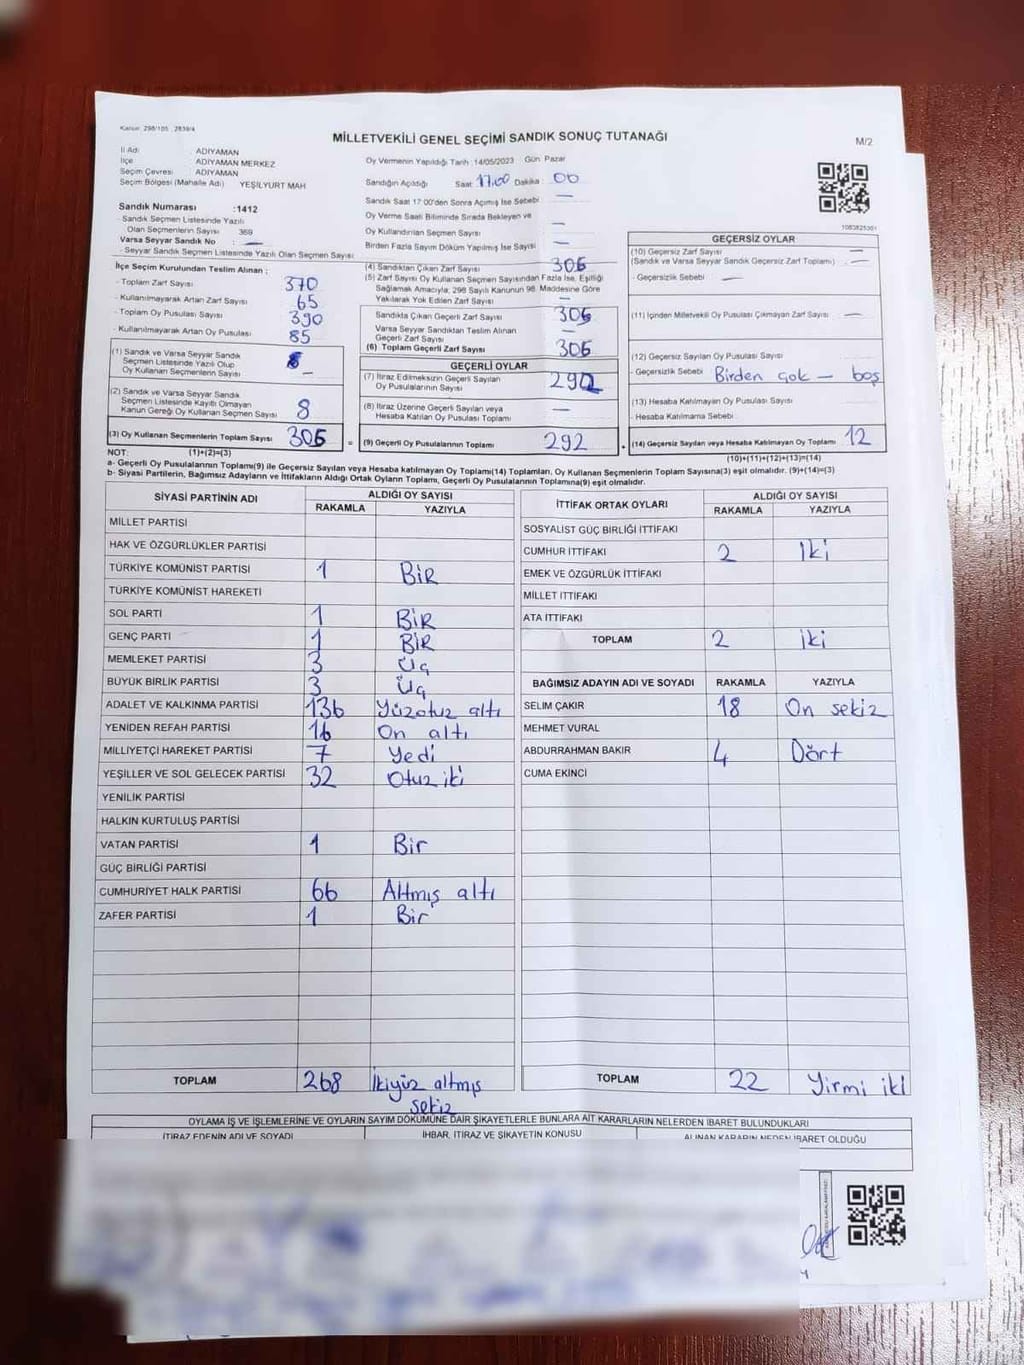 Kanun: 298/105 , 2839/4
MİLLETVEKİLİ GENEL SEÇİMİ SANDIK SONUÇ TUTANAĞI
M/2
İl Adı : ADIYAMAN
İlçe : ADIYAMAN MERKEZ
Seçim Çevresi : ADIYAMAN
Seçim Bölgesi (Mahalle Adı) YEŞİLYURT MAH
Sandık Numarası :1412
- Sandık Seçmen Listesinde Yazılı
Olan Seçmenlerin Sayısı 369
Varsa Seyyar Sandık No : —
- Seyyar Sandık Seçmen Listesinde Yazılı Olan Seçmen Sayısı
İlçe Seçim Kurulundan Teslim Alınan :
- Toplam Zarf Sayısı 370
- Kullanılmayarak Artan Zarf Sayısı 65
- Toplam Oy Pusulası Sayısı 390
- Kullanılmayarak Artan Oy Pusulası 85
(1) Sandık ve Varsa Seyyar Sandık
Seçmen Listesinde Yazılı Olup
Oy Kullanan Seçmenlerin Sayısı —
(2) Sandık ve Varsa Seyyar Sandık
Seçmen Listesinde Kayıtlı Olmayan
Kanun Gereği Oy Kullanan Seçmen Sayısı 8
(3) Oy Kullanan Seçmenlerin Toplam Sayısı 306 =
Oy Vermenin Yapıldığı Tarih :14/05/2023 Gün Pazar
Sandığın Açıldığı Saat 17.00 Dakika : 00
Sandık Saat 17:00'den Sonra Açılmış İse Sebebi —
Oy Verme Saati Bitiminde Sırada Bekleyen ve
Oy Kullandırılan Seçmen Sayısı —
Birden Fazla Sayım Döküm Yapılmış İse Sayısı —
(4) Sandıktan Çıkan Zarf Sayısı 306
(5) Zarf Sayısı Oy Kullanan Seçmen Sayısından Fazla İse, Eşitliği
Sağlamak Amacıyla; 298 Sayılı Kanunun 98. Maddesine Göre
Yakılarak Yok Edilen Zarf Sayısı —
Sandıkta Çıkan Geçerli Zarf Sayısı 306
Varsa Seyyar Sandıktan Teslim Alınan
Geçerli Zarf Sayısı —
(6) Toplam Geçerli Zarf Sayısı 306
GEÇERLİ OYLAR
(7) İtiraz Edilmeksizin Geçerli Sayılan
Oy Pusulalarının Sayısı 292
(8) İtiraz Üzerine Geçerli Sayılan veya
Hesaba Katılan Oy Pusulası Toplamı —
(9) Geçerli Oy Pusulalarının Toplamı 292
1083825301
GEÇERSİZ OYLAR
(10) Geçersiz Zarf Sayısı —
(Sandık ve Varsa Seyyar Sandık Geçersiz Zarf Toplamı) —
- Geçersizlik Sebebi —
(11) İçinden Milletvekili Oy Pusulası Çıkmayan Zarf Sayısı —
(12) Geçersiz Sayılan Oy Pusulası Sayısı
- Geçersizlik Sebebi Birden çok — boş
(13) Hesaba Katılmayan Oy Pusulası Sayısı
- Hesaba Katılmama Sebebi
(14) Geçersiz Sayılan veya Hesaba Katılmayan Oy Toplamı 12
NOT: (1)+(2)=(3)
(10)+(11)+(12)+(13)=(14)
a- Geçerli Oy Pusulalarının Toplamı(9) ile Geçersiz Sayılan veya Hesaba katılmayan Oy Toplamı(14) Toplamları, Oy Kullanan Seçmenlerin Toplam Sayısına(3) eşit olmalıdır. (9)+(14)=(3)
b- Siyasi Partilerin, Bağımsız Adayların ve İttifakların Aldığı Ortak Oyların Toplamı, Geçerli Oy Pusulalarının Toplamına(9) eşit olmalıdır.
SİYASİ PARTİNİN ADI ALDIĞI OY SAYISI
RAKAMLA YAZIYLA
MİLLET PARTİSİ
HAK VE ÖZGÜRLÜKLER PARTİSİ
TÜRKİYE KOMÜNİST PARTİSİ 1 BİR
TÜRKİYE KOMÜNİST HAREKETİ
SOL PARTİ 1 BİR
GENÇ PARTİ 1 BİR
MEMLEKET PARTİSİ 3 Üç
BÜYÜK BİRLİK PARTİSİ 3 Üç
ADALET VE KALKINMA PARTİSİ 136 Yüzotuz altı
YENİDEN REFAH PARTİSİ 16 On altı
MİLLİYETÇİ HAREKET PARTİSİ 7 Yedi
YEŞİLLER VE SOL GELECEK PARTİSİ 32 Otuz iki
YENİLİK PARTİSİ
HALKIN KURTULUŞ PARTİSİ
VATAN PARTİSİ 1 Bir
GÜÇ BİRLİĞİ PARTİSİ
CUMHURİYET HALK PARTİSİ 66 Altmış altı
ZAFER PARTİSİ 1 Bir
TOPLAM 268 İkiyüz altmış
sekiz
İTTİFAK ORTAK OYLARI ALDIĞI OY SAYISI
RAKAMLA YAZIYLA
SOSYALİST GÜÇ BİRLİĞİ İTTİFAKI
CUMHUR İTTİFAKI 2 İki
EMEK VE ÖZGÜRLÜK İTTİFAKI
MİLLET İTTİFAKI
ATA İTTİFAKI
TOPLAM 2 iki
BAĞIMSIZ ADAYIN ADI VE SOYADI RAKAMLA YAZIYLA
SELİM ÇAKIR 18 On sekiz
MEHMET VURAL
ABDURRAHMAN BAKIR 4 Dört
CUMA EKİNCİ
TOPLAM 22 Yirmi iki
OYLAMA İŞ VE İŞLEMLERİNE VE OYLARIN SAYIM DÖKÜMÜNE DAİR ŞİKAYETLERLE BUNLARA AİT KARARLARIN NELERDEN İBARET BULUNDUKLARI
İTİRAZ EDENİN ADI VE SOYADI İHBAR, İTİRAZ VE ŞİKAYETİN KONUSU ALINAN KARARIN NEDEN İBARET OLDUĞU